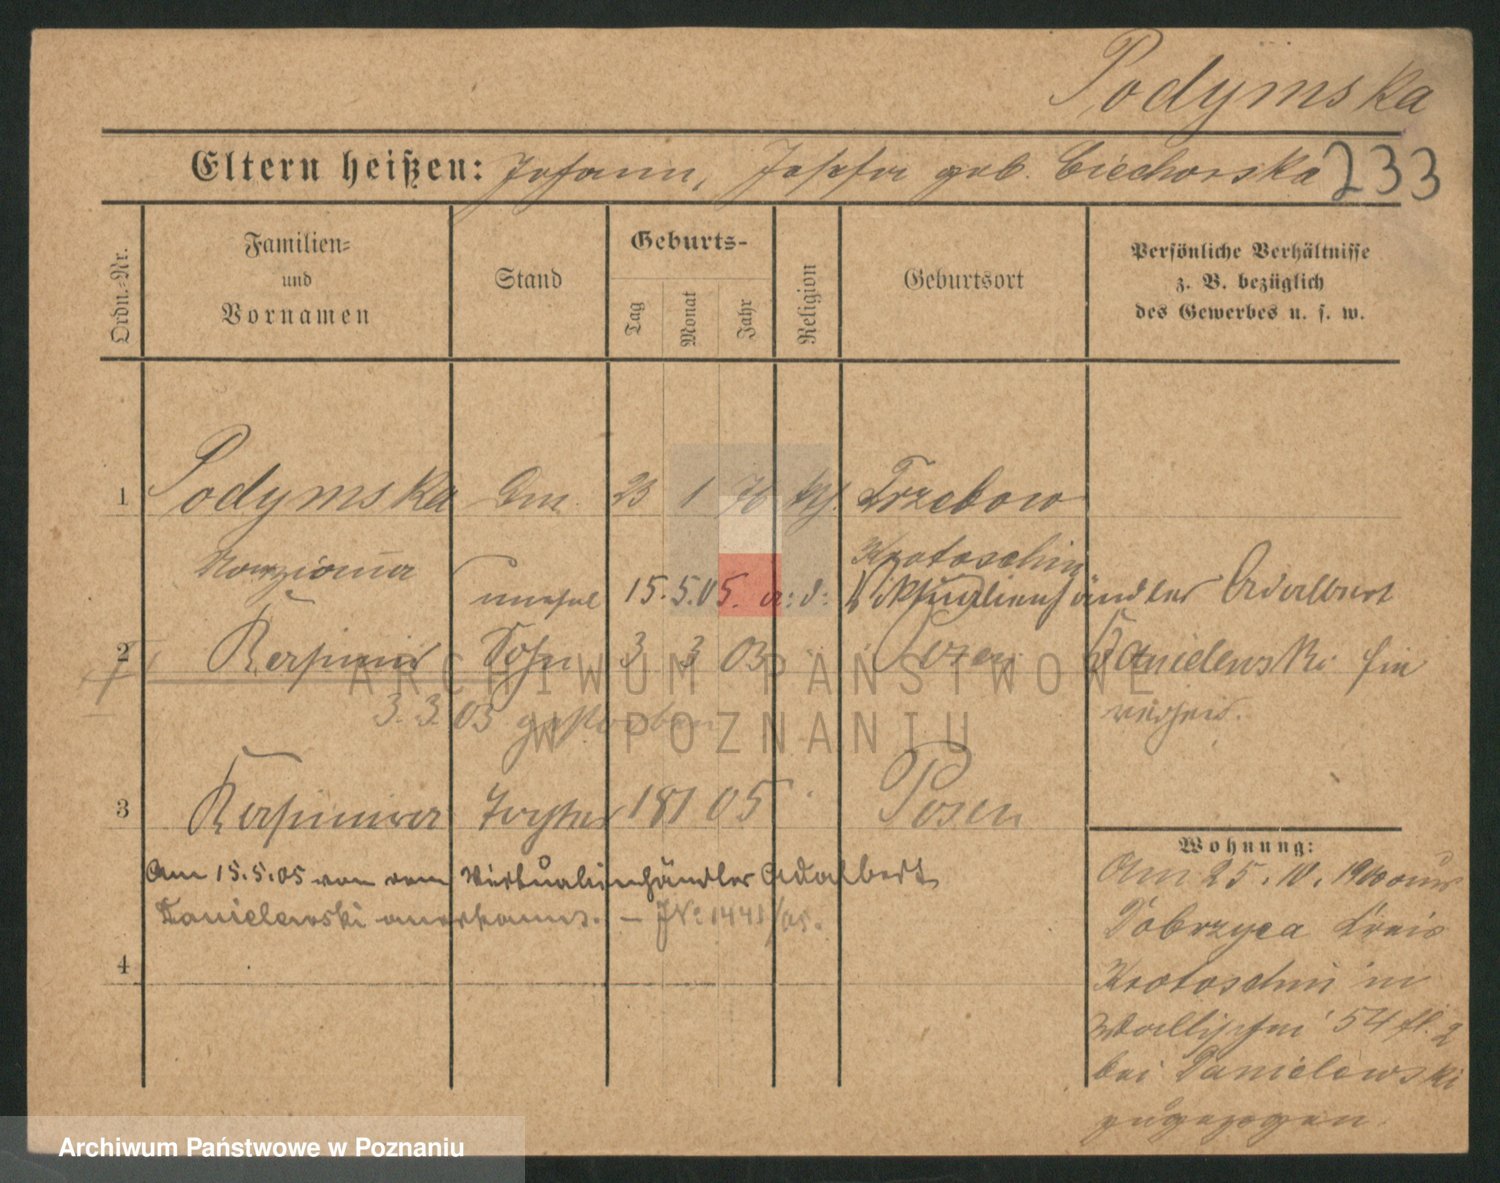 Podymska
Eltern heißen: Johann, Josefa geb. Ciechorska 233
Ordn.=Nr.
Familien=
und
Vornamen
Stand
Geburts-
Tag
Monat
Jahr
Religion
Geburtsort
Persönliche Verhältnisse
z. B. bezüglich
des Gewerbes u. s. w.
1 Podymska 23 1 70 kth. Trzebow
Krotoschin
unehel 15.5.05. a: d: Viktualienhändler Adalbert
2 Kasimir Sohn 3 3 03 Posen Danielewski
3.3.03 gestorben
3 Kasimira Tochter 18 1 05 Posen
Am 15.5.05 von dem Viktualienhändler Adalbert
Danielewski anerkannt. — JNo 1441/05.
4
Wohnung:
Am 25. IV. 1900 aus
Dobrzyca Kreis
Krotoschin in
Wallischei 54
bei Danielewski
zugezogen.
ARCHIWUM PAŃSTWOWE
W POZNANIU
Archiwum Państwowe w Poznaniu